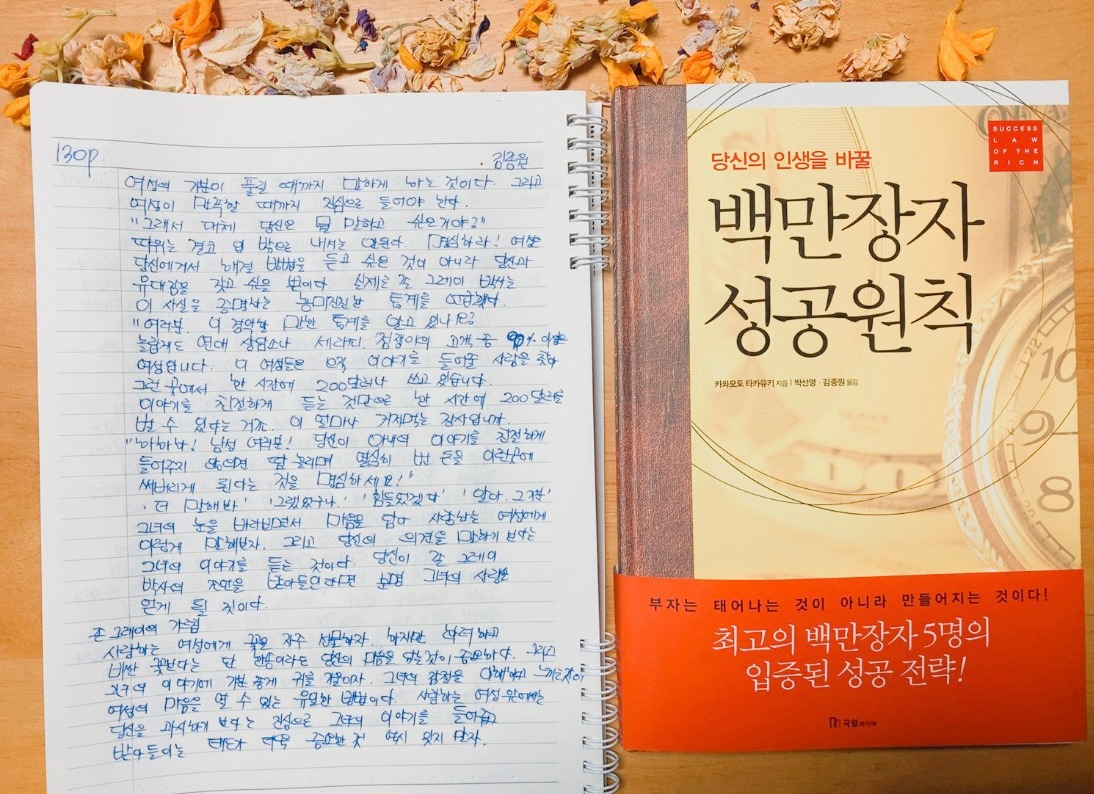 130p.
김종원
여성의 기분이 풀릴 때까지 말하게 하는 것이다. 그리고
여성이 만족할 때까지 진심으로 들어야 한다.
"그래서 대체 당신은 뭘 말하고 싶은거야?"
따위는 결코 입 밖으로 내서는 안된다. 명심하라! 여성은
당신에게서 해결 방법을 듣고 싶은 것이 아니라 당신과
유대감을 갖고 싶을 뿐이다. 실제로 존 그레이 박사는
이 사실을 증명하는 흥미진진한 통계를 언급했다.
"여러분, 이 경악할 만한 통계를 알고 있나요?
놀랍게도 연애 상담소나 세라피, 점쟁이의 고객 중 90% 이상은
여성입니다. 이 여성들은 오직 이야기를 들어줄 사람을 찾아
그런 곳에서 한 시간에 200달러나 쓰고 있습니다.
이야기를 친절하게 듣는 것만으로 한 시간에 200달러를
벌 수 있다는 거죠. 이 얼마나 거저먹는 장사입니까.
"하하하! 남성 여러분! 당신이 아내의 이야기를 친절하게
들어주지 않으면 땀 흘리며 열심히 번 돈을 이런곳에
써버리게 된다는 것을 명심하세요!"
'더 말해봐' '그랬었구나' '힘들었겠다' '알아. 그 기분'
그녀의 눈을 바라보면서 마음을 담아 사랑하는 여성에게
이렇게 말해보자. 그리고 당신의 의견을 말하기 보다는
그녀의 이야기를 듣는 것이다. 당신이 존 그레이
박사의 조언을 받아들인다면 분명 그녀의 사랑을
얻게 될 것이다.
존 그레이의 가르침
사랑하는 여성에게 꽃을 자주 선물하자. 하지만 화려하고
비싼 꽃보다는 단 한송이라도 당신의 마음을 담는것이 중요하다. 그리고
그녀의 이야기에 기분 좋게 귀를 기울이자. 그녀의 감정을 이해하고 느끼는것이
여성의 마음을 열 수 있는 유일한 방법이다. 사랑하는 여성 앞에서는
당신을 과시하기 보다는 진심으로 그녀의 이야기를 들어주고
받아들이는 태도가 더욱 중요한 것 역시 잊지 말자.
SUCCESS
LAW
OF THE
RICH
당신의 인생을 바꿀
백만장자
성공원칙
카와모토 타카유키 지음 | 박선영 · 김종원 옮김
10
9
8
부자는 태어나는 것이 아니라 만들어지는 것이다!
최고의 백만장자 5명의
입증된 성공 전략!
국일미디어